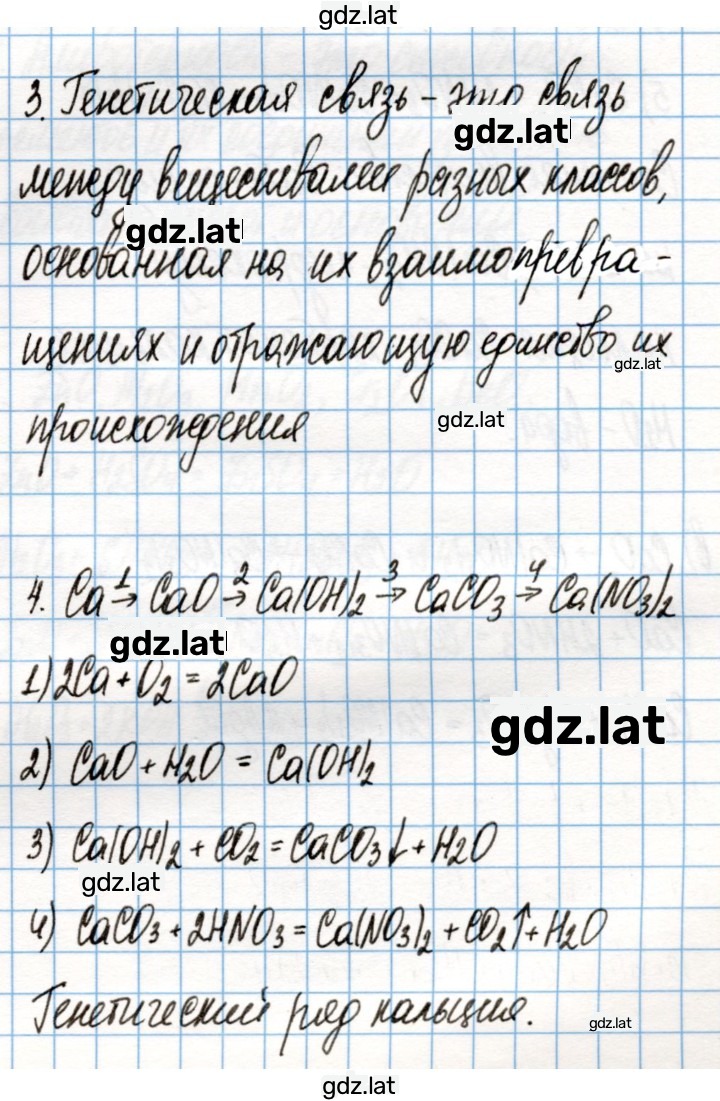 gdz.lat
3. Генетическая связь - это связь
gdz.lat
между веществами разных классов,
gdz.lat
основанная на их взаимопревра-
щениях и отражающую единство их
gdz.lat
происхождения
gdz.lat
4. Ca →¹ CaO →² Ca(OH)₂ →³ CaCO₃ →⁴ Ca(NO₃)₂
gdz.lat
1) 2Ca + O₂ = 2CaO
gdz.lat
2) CaO + H₂O = Ca(OH)₂
3) Ca(OH)₂ + CO₂ = CaCO₃↓ + H₂O
gdz.lat
4) CaCO₃ + 2HNO₃ = Ca(NO₃)₂ + CO₂↑ + H₂O
Генетический ряд кальция.
gdz.lat
gdz.lat